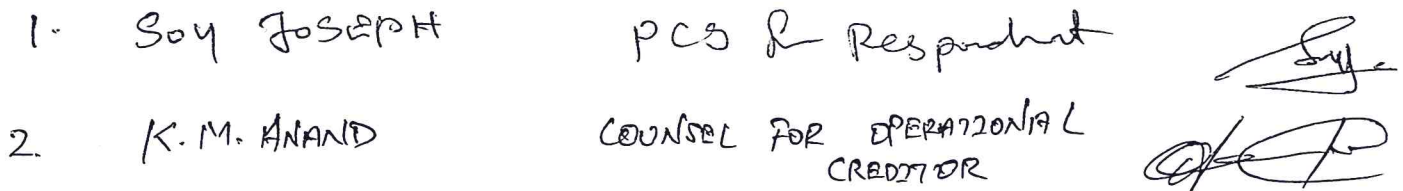 1. Soy JOSEPH PCS for Respondent
2. K.M. ANAND COUNSEL FOR OPERATIONAL
CREDITOR